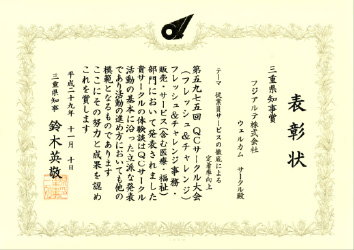 表彰状
三重県知事賞
フジアルテ株式会社
ウェルカム サークル殿
テーマ 従業員サービスの徹底による
定着率向上
第五九七五回 QCサークル大会
(フレッシュ&チャレンジ)
フレッシュ&チャレンジ事務・
販売・サービス(含む医療・福祉)
部門において発表されました
貴サークルの体験談はQCサークル
活動の基本に沿った立派な発表
であり活動の進め方においても他の
模範となるものであります
ここにその努力と成果を認め
これを賞します
平成二十九年 十一月 十日
三重県知事 鈴木英敬